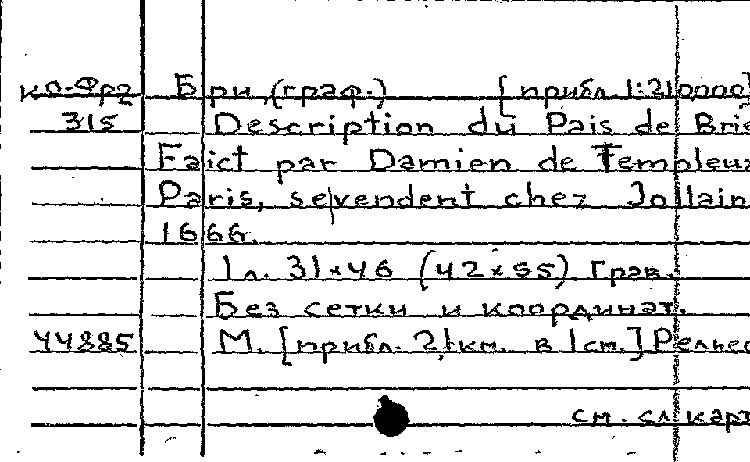 КО-Фр2 Бри, (граф.) [прибл. 1:210000]
315 Description du Pais de Brie
Faict par Damien de Templeux
Paris, se vendent chez Jollain
1666.
1 л. 31×46 (42×55). Грав.
Без сетки и координат.
44885 М. [прибл. 2,1 км. в 1 см.] Рельеф
см. сл. карт